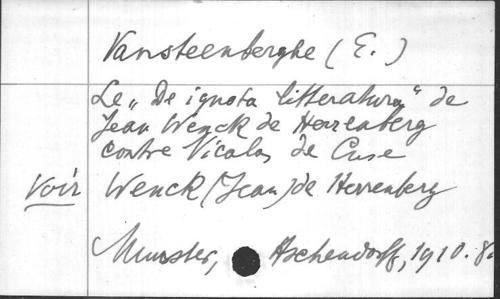 Vansteenberghe (E.)
Le „De ignota litteratura" de
Jean Wenck de Herrenberg
contre Nicolas de Cuse
Voir Wenck (Jean) de Herrenberg
Munster, Aschendorff, 1910. 8.